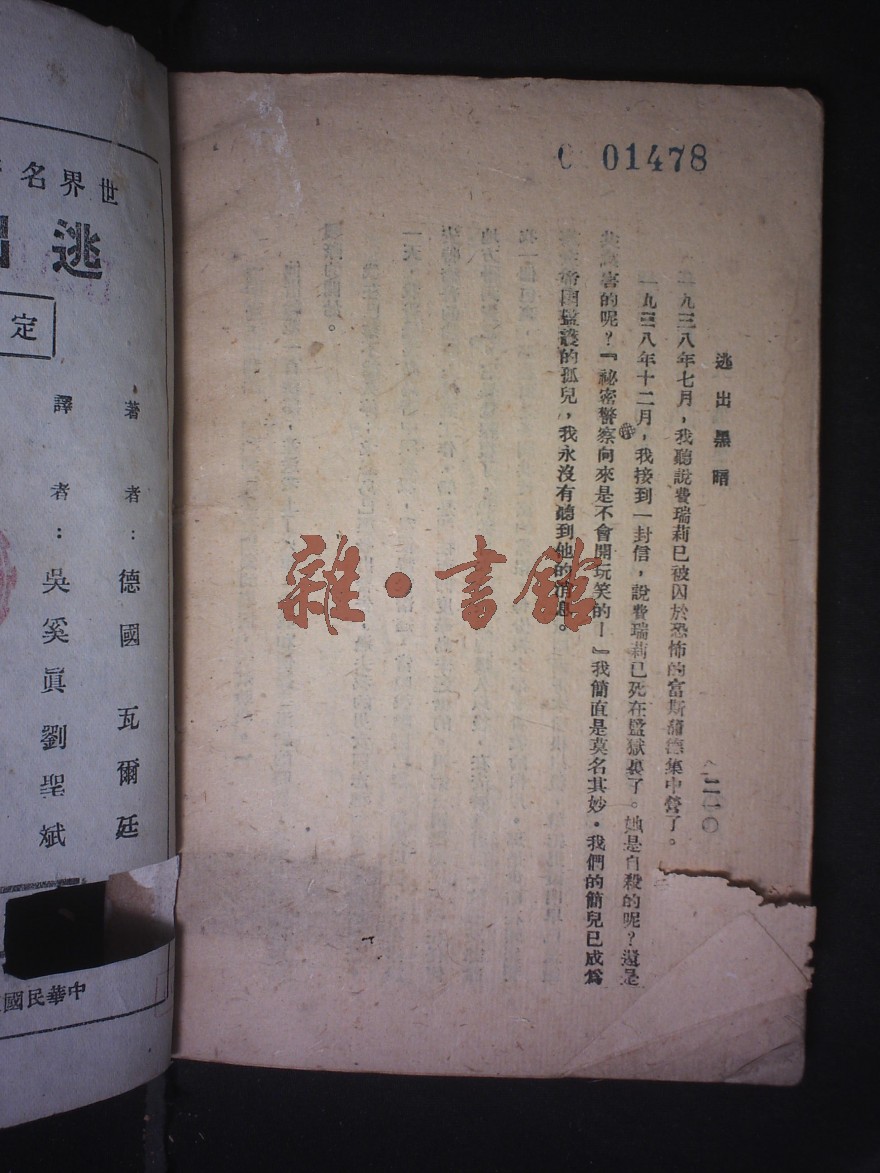 C 01478
逃出黑暗
二一〇
一九三八年七月，我聽說費瑞莉已被囚於恐怖的富斯蒲德集中營了。
一九三八年十二月，我接到一封信，說費瑞莉已死在監獄裏了。她是自殺的呢？還是
害的呢？『祕密警察向來是不會開玩笑的—』我簡直是莫名其妙。我們的簡兒已成為
帝國監護的孤兒，我永沒有聽到他的消息。
雜·書館
世界名
逃出
定
著者：德國 瓦爾廷
譯者：吳奚眞 劉聖斌
中華民國